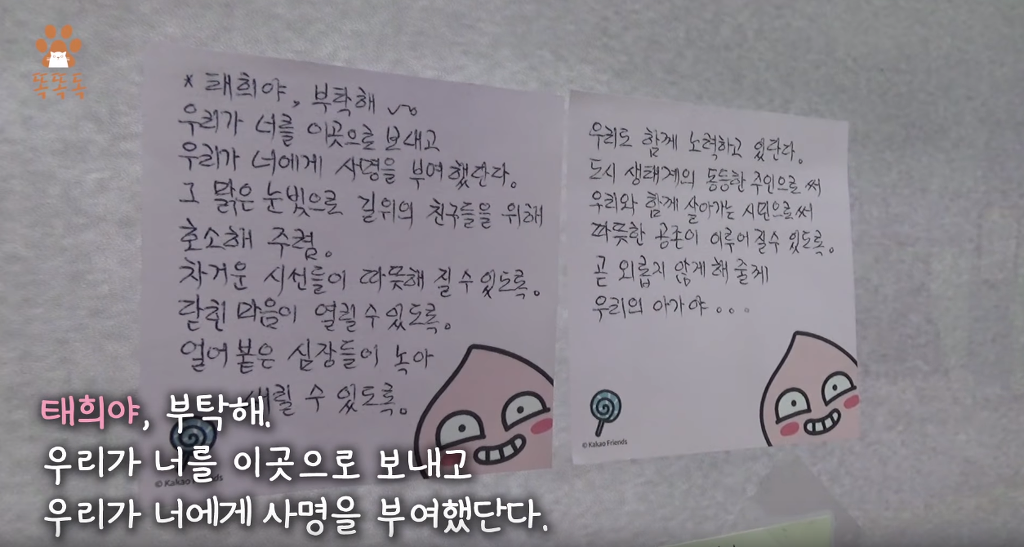 똑똑똑
* 태희야, 부탁해
우리가 너를 이곳으로 보내고
우리가 너에게 사명을 부여했단다.
그 맑은 눈빛으로 길위의 친구들을 위해
호소해 주렴.
차거운 시선들이 따뜻해 질 수 있도록.
닫힌 마음이 열릴 수 있도록.
얼어 붙은 심장들이 녹아
내릴 수 있도록.
© Kakao Friends
우리도 함께 노력하고 있단다.
도시 생태계의 동등한 주인으로 써
우리와 함께 살아가는 시민으로써
따뜻한 공존이 이루어 질 수 있도록.
곧 외롭지 않게 해 줄게
우리의 아가야...
© Kakao Friends
태희야, 부탁해.
우리가 너를 이곳으로 보내고
우리가 너에게 사명을 부여했단다.